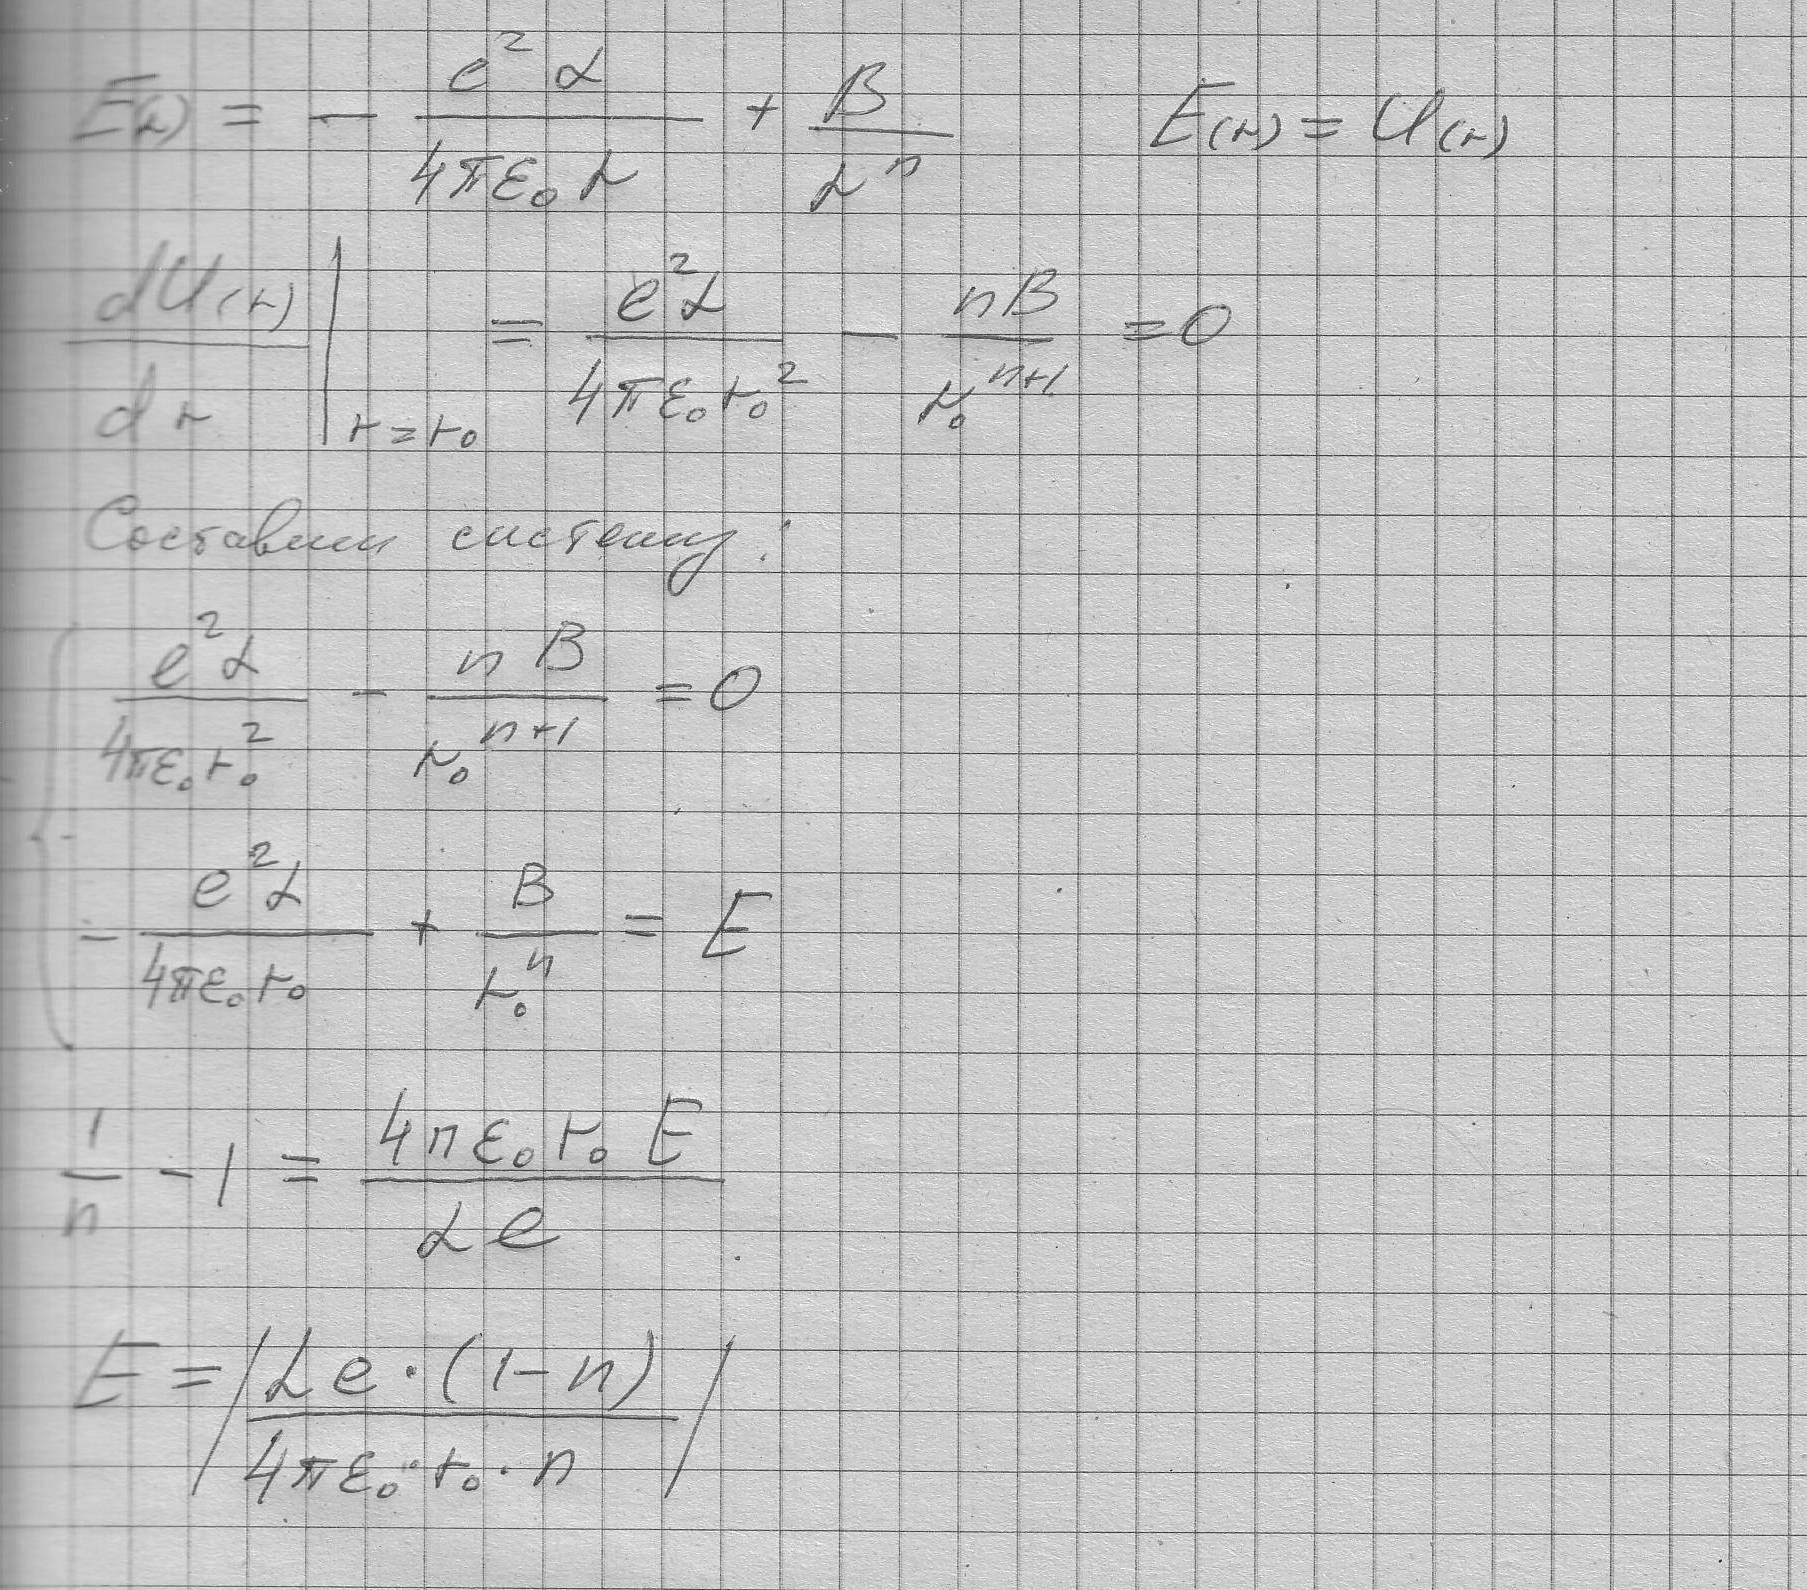 E(r) = - e² α / 4πε₀ r + B / rⁿ    E(r) = U(r)
dU(r) / dr |r=r₀ = e² α / 4πε₀ r₀² - nB / r₀ⁿ⁺¹ = 0
Составим систему:
{ e² α / 4πε₀ r₀² - nB / r₀ⁿ⁺¹ = 0
- e² α / 4πε₀ r₀ + B / r₀ⁿ = E
1/n - 1 = 4πε₀ r₀ E / α e
E = | α e · (1 - n) / 4πε₀ · r₀ · n |